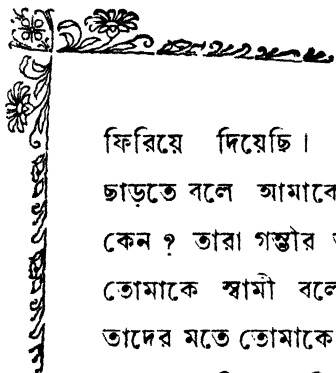 ফিরিয়ে দিয়েছি।
ছাড়তে বলে আমাকে
কেন ? তারা গম্ভীর
তোমাকে স্বামী বলে
তাদের মতে তোমাকে